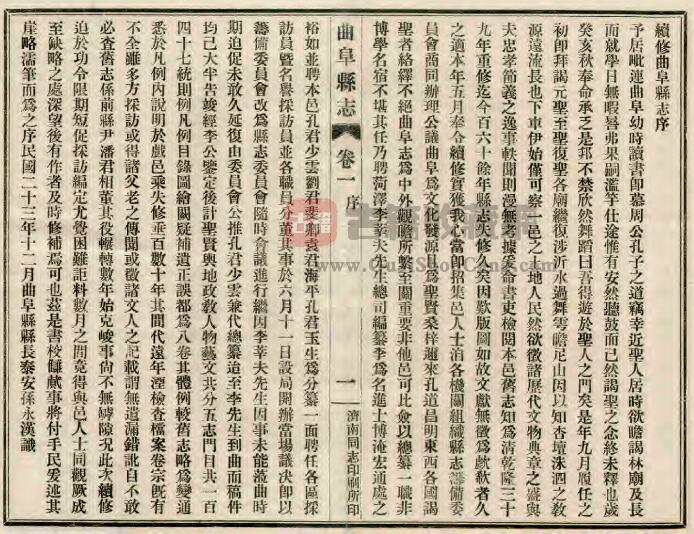 續修曲阜縣志序
予居毗連曲阜幼時讀書即慕周公孔子之道竊幸近聖人居時欲瞻謁林廟及長
而就學日無暇晷弗果嗣濫竽仕途惟有安然聽鼓而已然謁聖之念終未釋也歲
癸亥秋奉命承乏是邦不禁欣然舞蹈曰吾得遊於聖人之門矣是年九月履任之
初即拜謁元聖至聖復聖各廟繼復涉沂水過舞雩瞻尼山因以知杏壇洙泗之教
源遠流長也下車伊始僅可察一邑之土地人民然欲徵諸歷代文物典章之盛與
夫忠孝節義之逸事軼聞則漫無考據爰命書吏檢閱本邑舊志知爲清乾隆三十
九年重修迄今百六十餘年縣志失修久矣因歎版圖如故文獻無徵爲欷歔者久
之適本年五月奉令續修實獲我心當即招集邑人士洎各機關組織縣志籌備委
員會商同辦理公議曲阜爲文化發源地爲聖賢桑梓邇來孔道昌明東西各國謁
聖者絡繹不絕曲阜志爲中外觀瞻所繫至關重要非他邑可比僉以總纂一職非
博學名宿不堪其任乃聘菏澤李莘夫先生總司編纂李爲名進士博淹宏通處之
曲阜縣志
卷一 序
一
濟南同志印刷所印
裕如並聘本邑孔君少雲劉君斐卿袁君海平孔君玉生爲分纂一面聘任各區採
訪員暨名譽採訪員並各職員分董其事於六月十一日設局開辦當場議決即以
籌備委員會改爲縣志委員會隨時會議進行繼因李莘夫先生因事未能蒞曲時
期迫促未敢久延復由委員會公推孔君少雲兼代總纂迨至李先生到曲而稿件
均已大半告竣經李公鑒定後計聖賢輿地政敎人物藝文共分五志門目共一百
四十七統則例凡例目錄圖繪闕疑補遺正誤都爲八卷其體例較舊志略爲變通
悉於凡例內說明於戲邑乘失修垂百數十年其間代遠年湮檢查檔案卷宗旣有
不全雖多方採訪或得諸父老之傳聞或徵諸文人之記載謂無遺漏錯訛自不敢
必查舊志係前縣尹潘君相董其役輾轉數年始克峻事尙不無罅隙況此次續修
迫於功令限期短促採訪編定尤覺困難詎料數月之間竟得與邑人士同觀厥成
至缺略之處深望後有作者及時修補焉可也茲是書校讎蕆事將付手民爰述其
崖略濡筆而爲之序民國二十三年十二月曲阜縣縣長泰安孫永漢識